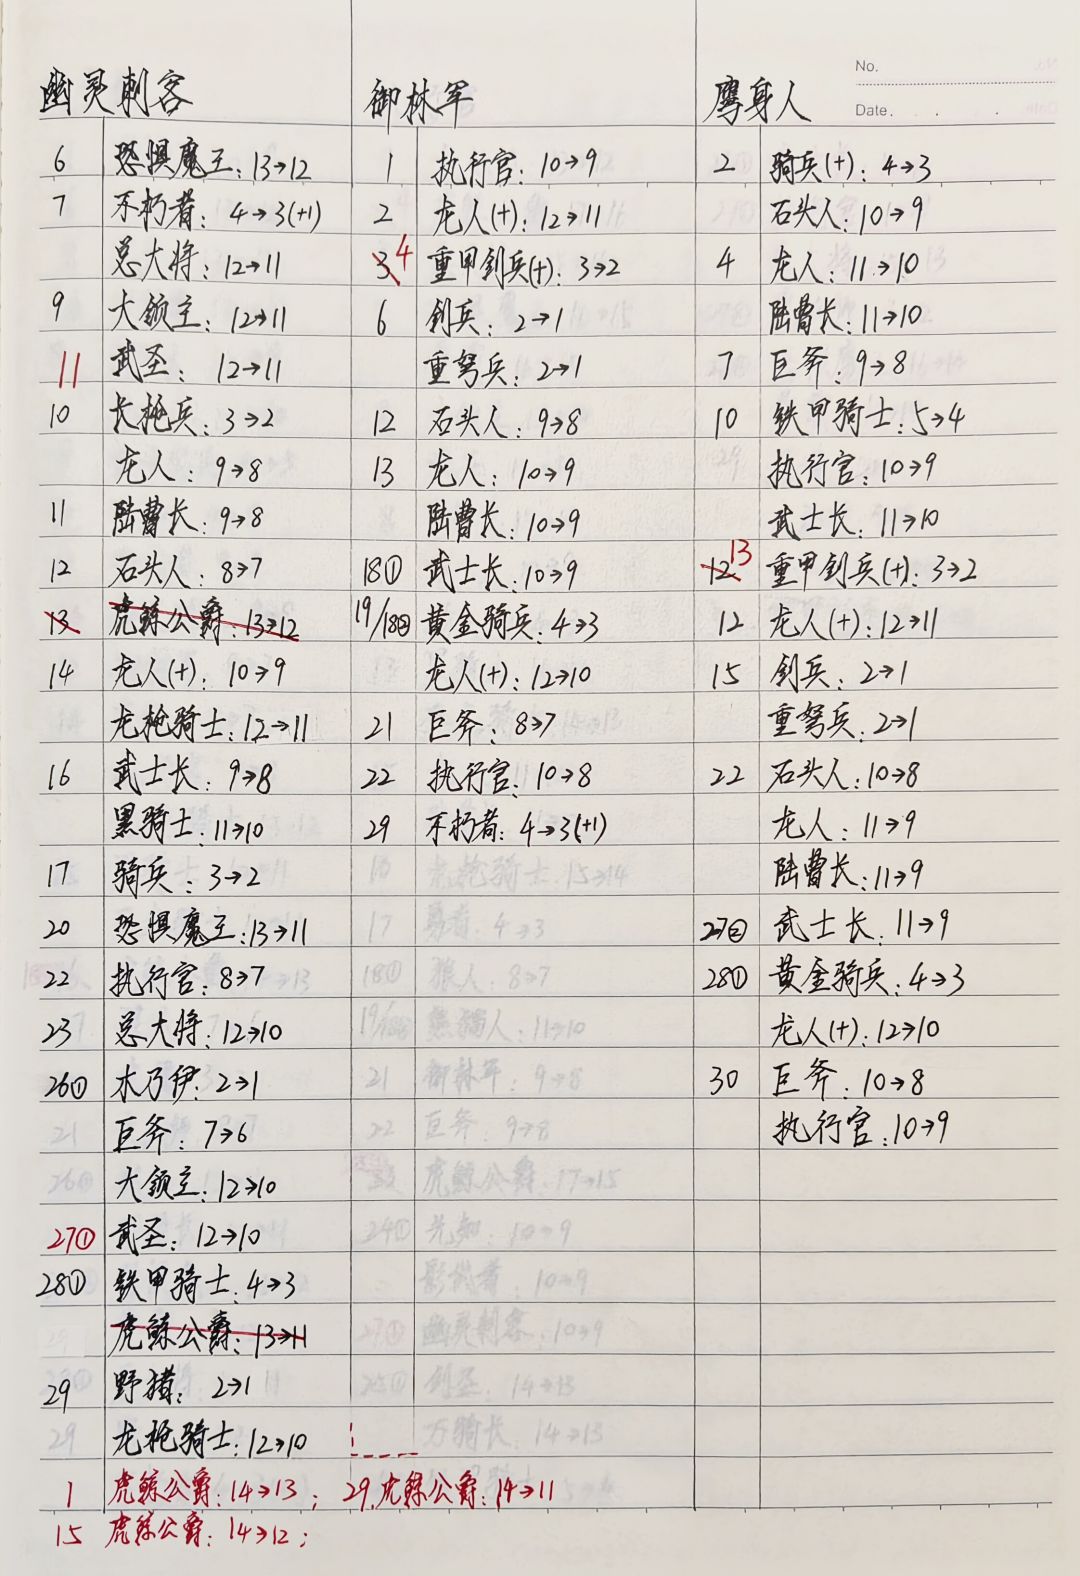 No.
Date.
幽灵刺客
6 恐惧魔王: 13→12
7 不朽者: 4→3(+1)
总大将: 12→11
9 大领主: 12→11
11 武圣: 12→11
10 长枪兵: 3→2
龙人: 9→8
11 陆曹长: 9→8
12 石头人: 8→7
13 虎鲸公爵: 13→12
14 龙人(+): 10→9
龙枪骑士: 12→11
16 武士长: 9→8
黑骑士: 11→10
17 骑兵: 3→2
20 恐惧魔王: 13→11
22 执行官: 8→7
23 总大将: 12→10
26① 木乃伊: 2→1
巨斧: 7→6
大领主: 12→10
27① 武圣: 12→10
28① 铁甲骑士: 4→3
虎鲸公爵: 13→11
29 野猪: 2→1
龙枪骑士: 12→10
1 虎鲸公爵: 14→13; 29.虎鲸公爵: 14→11
15 虎鲸公爵: 14→12;
御林军
1 执行官: 10→9
2 龙人(+): 12→11
3 4 重甲剑兵(+): 3→2
6 剑兵: 2→1
重弩兵: 2→1
12 石头人: 9→8
13 龙人: 10→9
陆曹长: 10→9
18① 武士长: 10→9
19/18② 黄金骑兵: 4→3
龙人(+): 12→10
21 巨斧: 8→7
22 执行官: 10→8
29 不朽者: 4→3(+1)
鹰身人
2 骑兵(+): 4→3
石头人: 10→9
4 龙人: 11→10
陆曹长: 11→10
7 巨斧: 9→8
10 铁甲骑士: 5→4
执行官: 10→9
武士长: 11→10
12 13 重甲剑兵(+): 3→2
12 龙人(+): 12→11
15 剑兵: 2→1
重弩兵: 2→1
22 石头人: 10→8
龙人: 11→9
陆曹长: 11→9
27② 武士长: 11→9
28① 黄金骑兵: 4→3
龙人(+): 12→10
30 巨斧: 10→8
执行官: 10→9